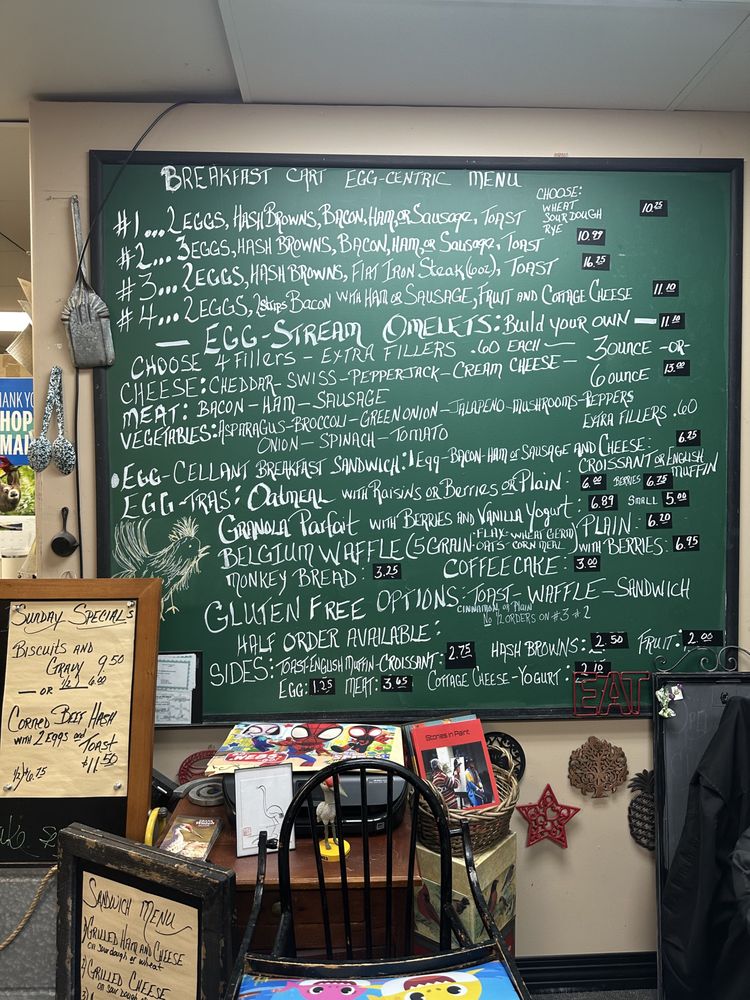 BREAKFAST CART EGG-CENTRIC MENU
CHOOSE:
WHEAT
SOUR DOUGH
RYE
#1... 2 EGGS, HASH BROWNS, BACON, HAM, OR SAUSAGE, TOAST 10.25
#2... 3 EGGS, HASH BROWNS, BACON, HAM, OR SAUSAGE, TOAST 10.99
#3... 2 EGGS, HASH BROWNS, FLAT IRON STEAK (6oz), TOAST 16.25
#4... 2 EGGS, 2 strips BACON WITH HAM OR SAUSAGE, FRUIT AND COTTAGE CHEESE 11.10
— EGG-STREAM OMELETS: BUILD YOUR OWN — 11.10
CHOOSE 4 FILLERS - EXTRA FILLERS .60 EACH — 3 OUNCE -OR-
CHEESE: CHEDDAR - SWISS - PEPPERJACK - CREAM CHEESE - 6 OUNCE 13.00
MEAT: BACON - HAM - SAUSAGE
VEGETABLES: ASPARAGUS - BROCCOLI - GREEN ONION - JALAPENO - MUSHROOMS - PEPPERS
ONION - SPINACH - TOMATO EXTRA FILLERS .60
EGG-CELLANT BREAKFAST SANDWICH: 1 EGG - BACON - HAM OR SAUSAGE AND CHEESE: 6.25
CROISSANT OR ENGLISH MUFFIN
EGG-TRAS: OATMEAL WITH RAISINS OR BERRIES OR PLAIN: 6.00 BERRIES 6.75
GRANOLA PARFAIT WITH BERRIES AND VANILLA YOGURT: 6.89 SMALL 5.00
BELGIUM WAFFLE (5 GRAIN - FLAX - WHEAT GERM - OATS - CORN MEAL) PLAIN: 6.20
WITH BERRIES: 6.95
MONKEY BREAD: 3.25 COFFEECAKE: 3.00
GLUTEN FREE OPTIONS: TOAST - WAFFLE - SANDWICH
CINNAMON OR PLAIN
NO 1/2 ORDERS ON #3 #2
HALF ORDER AVAILABLE:
SIDES: TOAST - ENGLISH MUFFIN - CROISSANT: 2.75 HASH BROWNS: 2.50 FRUIT: 2.00
EGG: 1.25 MEAT: 3.65 COTTAGE CHEESE - YOGURT: 2.10
EAT
HANK YO
HOP
MAL
SUNDAY SPECIALS
BISCUITS AND
GRAVY 9.50
— OR — 1/2 6.00
CORNED BEEF HASH
WITH 2 EGGS and TOAST
1/2) 6.75 $11.50
Stories in Paint
SANDWICH MENU
1) GRILLED HAM AND CHEESE
ON SOUR DOUGH OR WHEAT
2) GRILLED CHEESE
ON SOUR DOUGH